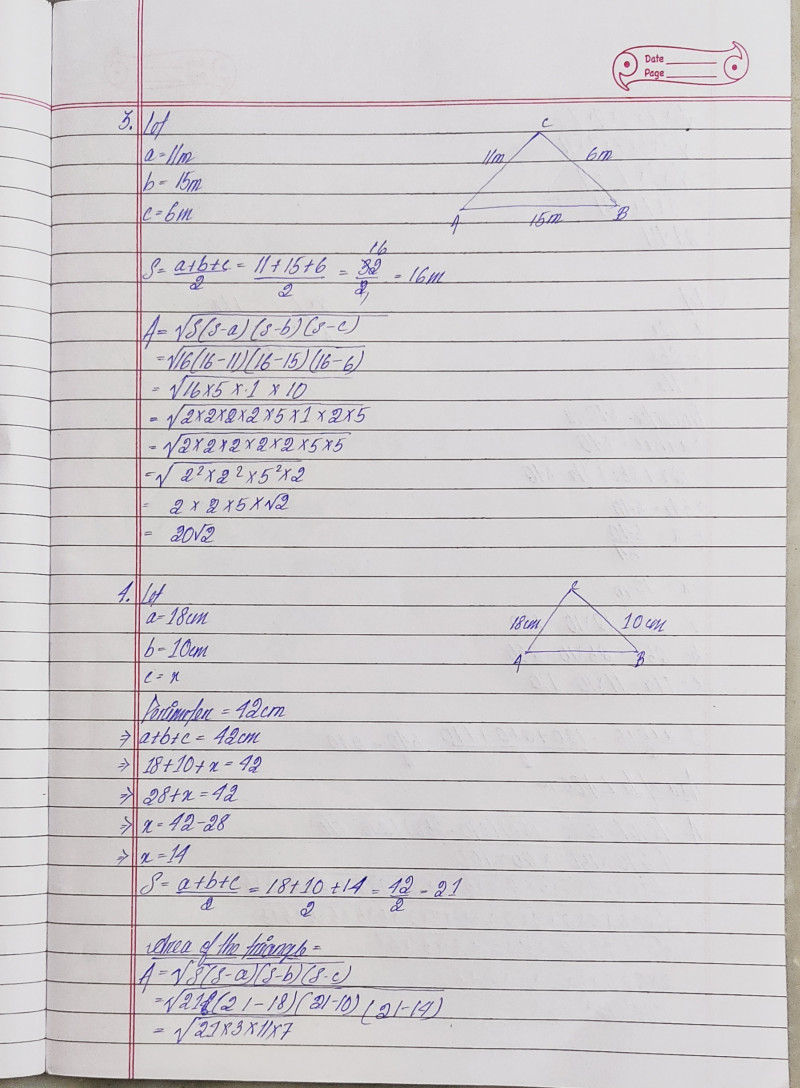 Date
Page
3. Let
a = 11m
b = 15m
c = 6m
C
11m
6m
A
15m
B
S = a+b+c/2 = 11+15+6/2 = 32/2 16 = 16m
A = √S(s-a)(s-b)(s-c)
= √16(16-11)(16-15)(16-6)
= √16×5×1×10
= √2×2×2×2×5×1×2×5
= √2×2×2×2×2×5×5
= √2²×2²×5²×2
= 2×2×5×√2
= 20√2
4. Let
a = 18cm
b = 10cm
c = x
C
18cm
10cm
A
B
Perimeter = 42cm
⇒ a+b+c = 42cm
⇒ 18+10+x = 42
⇒ 28+x = 42
⇒ x = 42-28
⇒ x = 14
S = a+b+c/2 = 18+10+14/2 = 42/2 = 21
Area of the triangle =
A = √S(s-a)(s-b)(s-c)
= √21(21-18)(21-10)(21-14)
= √21×3×11×7